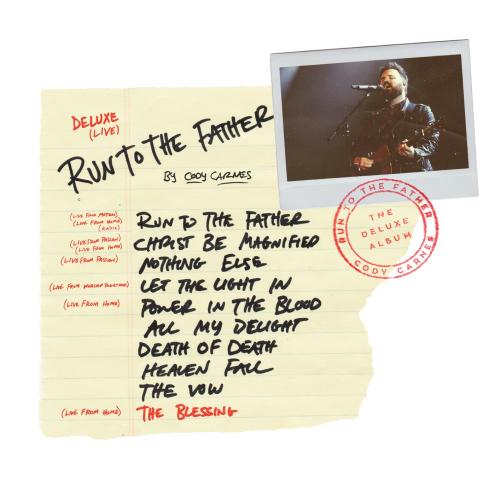 DELUXE
(LIVE)
RUN TO THE FATHER
BY CODY CARNES
(LIVE FROM
(LIVE FROM HOME)
(RADIO)
RUN TO THE FATHER
(LIVE FROM PASSION)
(LIVE FROM HOME)
CHRIST BE MAGNIFIED
(LIVE FROM PASSION)
NOTHING ELSE
(LIVE FROM WORSHIP TOGETHER)
LET THE LIGHT IN
(LIVE FROM HOME)
POWER IN THE BLOOD
ALL MY DELIGHT
DEATH OF DEATH
HEAVEN FALL
THE VOW
(LIVE FROM HOME)
THE BLESSING
RUN TO THE FATHER
THE
DELUXE
ALBUM
CODY CARNES